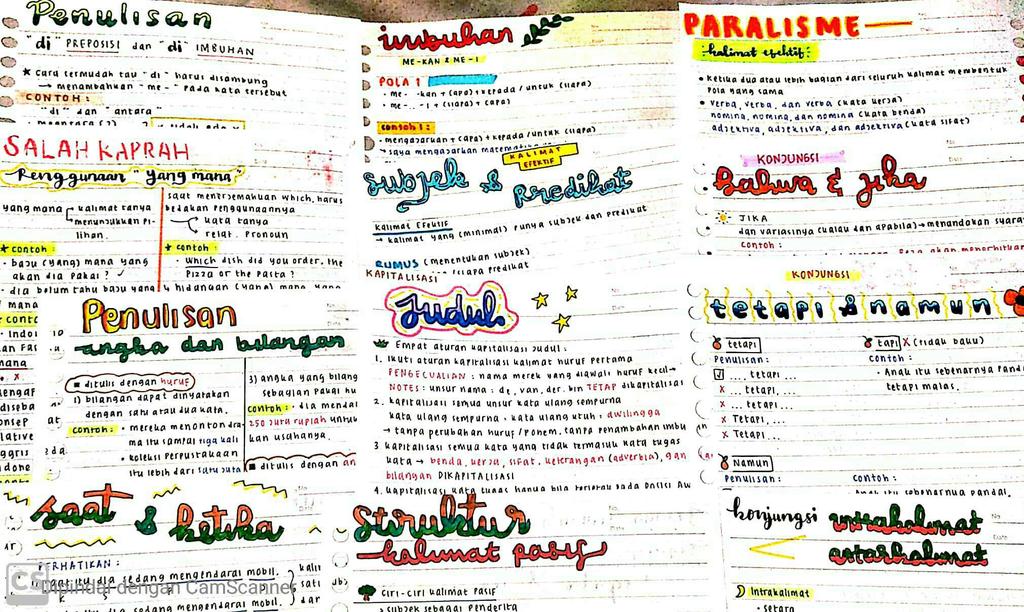 Penulisan
"di" PREPOSISI dan "di" IMBUHAN
★ Cara termudah tau "di" harus disambung
→ menambahkan "me-" pada kata tersebut
CONTOH:
"di" dan "antara"
SALAH KAPRAH
Penggunaan "Yang mana"
yang mana kalimat tanya
menunjukkan pi-
lihan.
★ contoh:
• baju (yang) mana yang
akan dia pakai? ✓
• dia belum tahu baju yang
saat menerjemahkan which, harus
bedakan penggunaannya
kata tanya
relat. pronoun
★ contoh:
• Which dish did you order, the
pizza or the pasta?
hidangan (yang) mana yang
Penulisan
angka dan bilangan
■ ditulis dengan huruf
1) bilangan dapat dinyatakan
dengan satu atau dua kata.
contoh: • mereka menonton dra-
ma itu sampai tiga kali
• koleksi perpustakaan
itu lebih dari satu juta
3) angka yang bilang
sebagian pakai hu
contoh: • dia mendal
250 juta rupiah untuk
kan usahanya.
■ ditulis dengan an
saat & ketika
PERHATIKAN:
saat itu dia sedang mengendarai mobil.
dia sedang mengendarai mobil.
CS Dipindai dengan CamScanner
imbuhan
ME-KAN & ME-I
POLA 1
• me- -kan + (apa) + kepada / untuk (siapa)
• me-... -i + (siapa) + (apa)
contoh 1:
• mengajarkan + (apa) + kepada / untuk (siapa)
→ saya mengajarkan matematika
KALIMAT
EFEKTIF
Subjek & Predikat
Kalimat Efektif
→ kalimat yang (minimal) punya subjek dan predikat
RUMUS (menentukan subjek)
KAPITALISASI
Judul
Empat aturan kapitalisasi judul:
1. Ikuti aturan kapitalisasi kalimat huruf pertama
PENGECUALIAN: nama merek yang diawali huruf kecil→
NOTES: unsur nama: de, van, der, bin TETAP dikapitalisasi
2. kapitalisasi semua unsur kata ulang sempurna
kata ulang sempurna: kata ulang utuh: dwilingga
→ tanpa perubahan huruf / fonem, tanpa penambahan imbu
3 kapitalisasi semua kata yang tidak termasuk kata tugas
kata → benda, kerja, sifat, keterangan (adverbia), gan
bilangan DIKAPITALISASI
4. kapitalisasi kata tugas hanya bila terletak pada posisi aw
Struktur
kalimat pasif
CIRI-CIRI KALIMAT PASIF
• subjek sebagai penderita
PARALISME
kalimat efektif:
• Ketika dua atau lebih bagian dari seluruh kalimat membentuk
pola yang sama
• verba, verba, dan verba (kata kerja)
nomina, nomina, dan nomina (kata benda)
adjektiva, adjektiva, dan adjektiva (kata sifat)
KONJUNGSI
Bahwa & jika
JIKA
dan variasinya (kalau dan apabila) → menandakan syarat
contoh:
KONJUNGSI
tetapi & namun
tetapi
Penulisan:
☑ ...., tetapi....
x .... tetapi....
x ... tetapi...
x Tetapi, ...
x Tetapi...
tapi x (tidak baku)
contoh:
• Anak itu sebenarnya pandai
tetapi malas.
Namun
Penulisan:
contoh:
Anak itu sebenarnya pandai.
konjungsi intrakalimat
antarkalimat
Intrakalimat
• setara